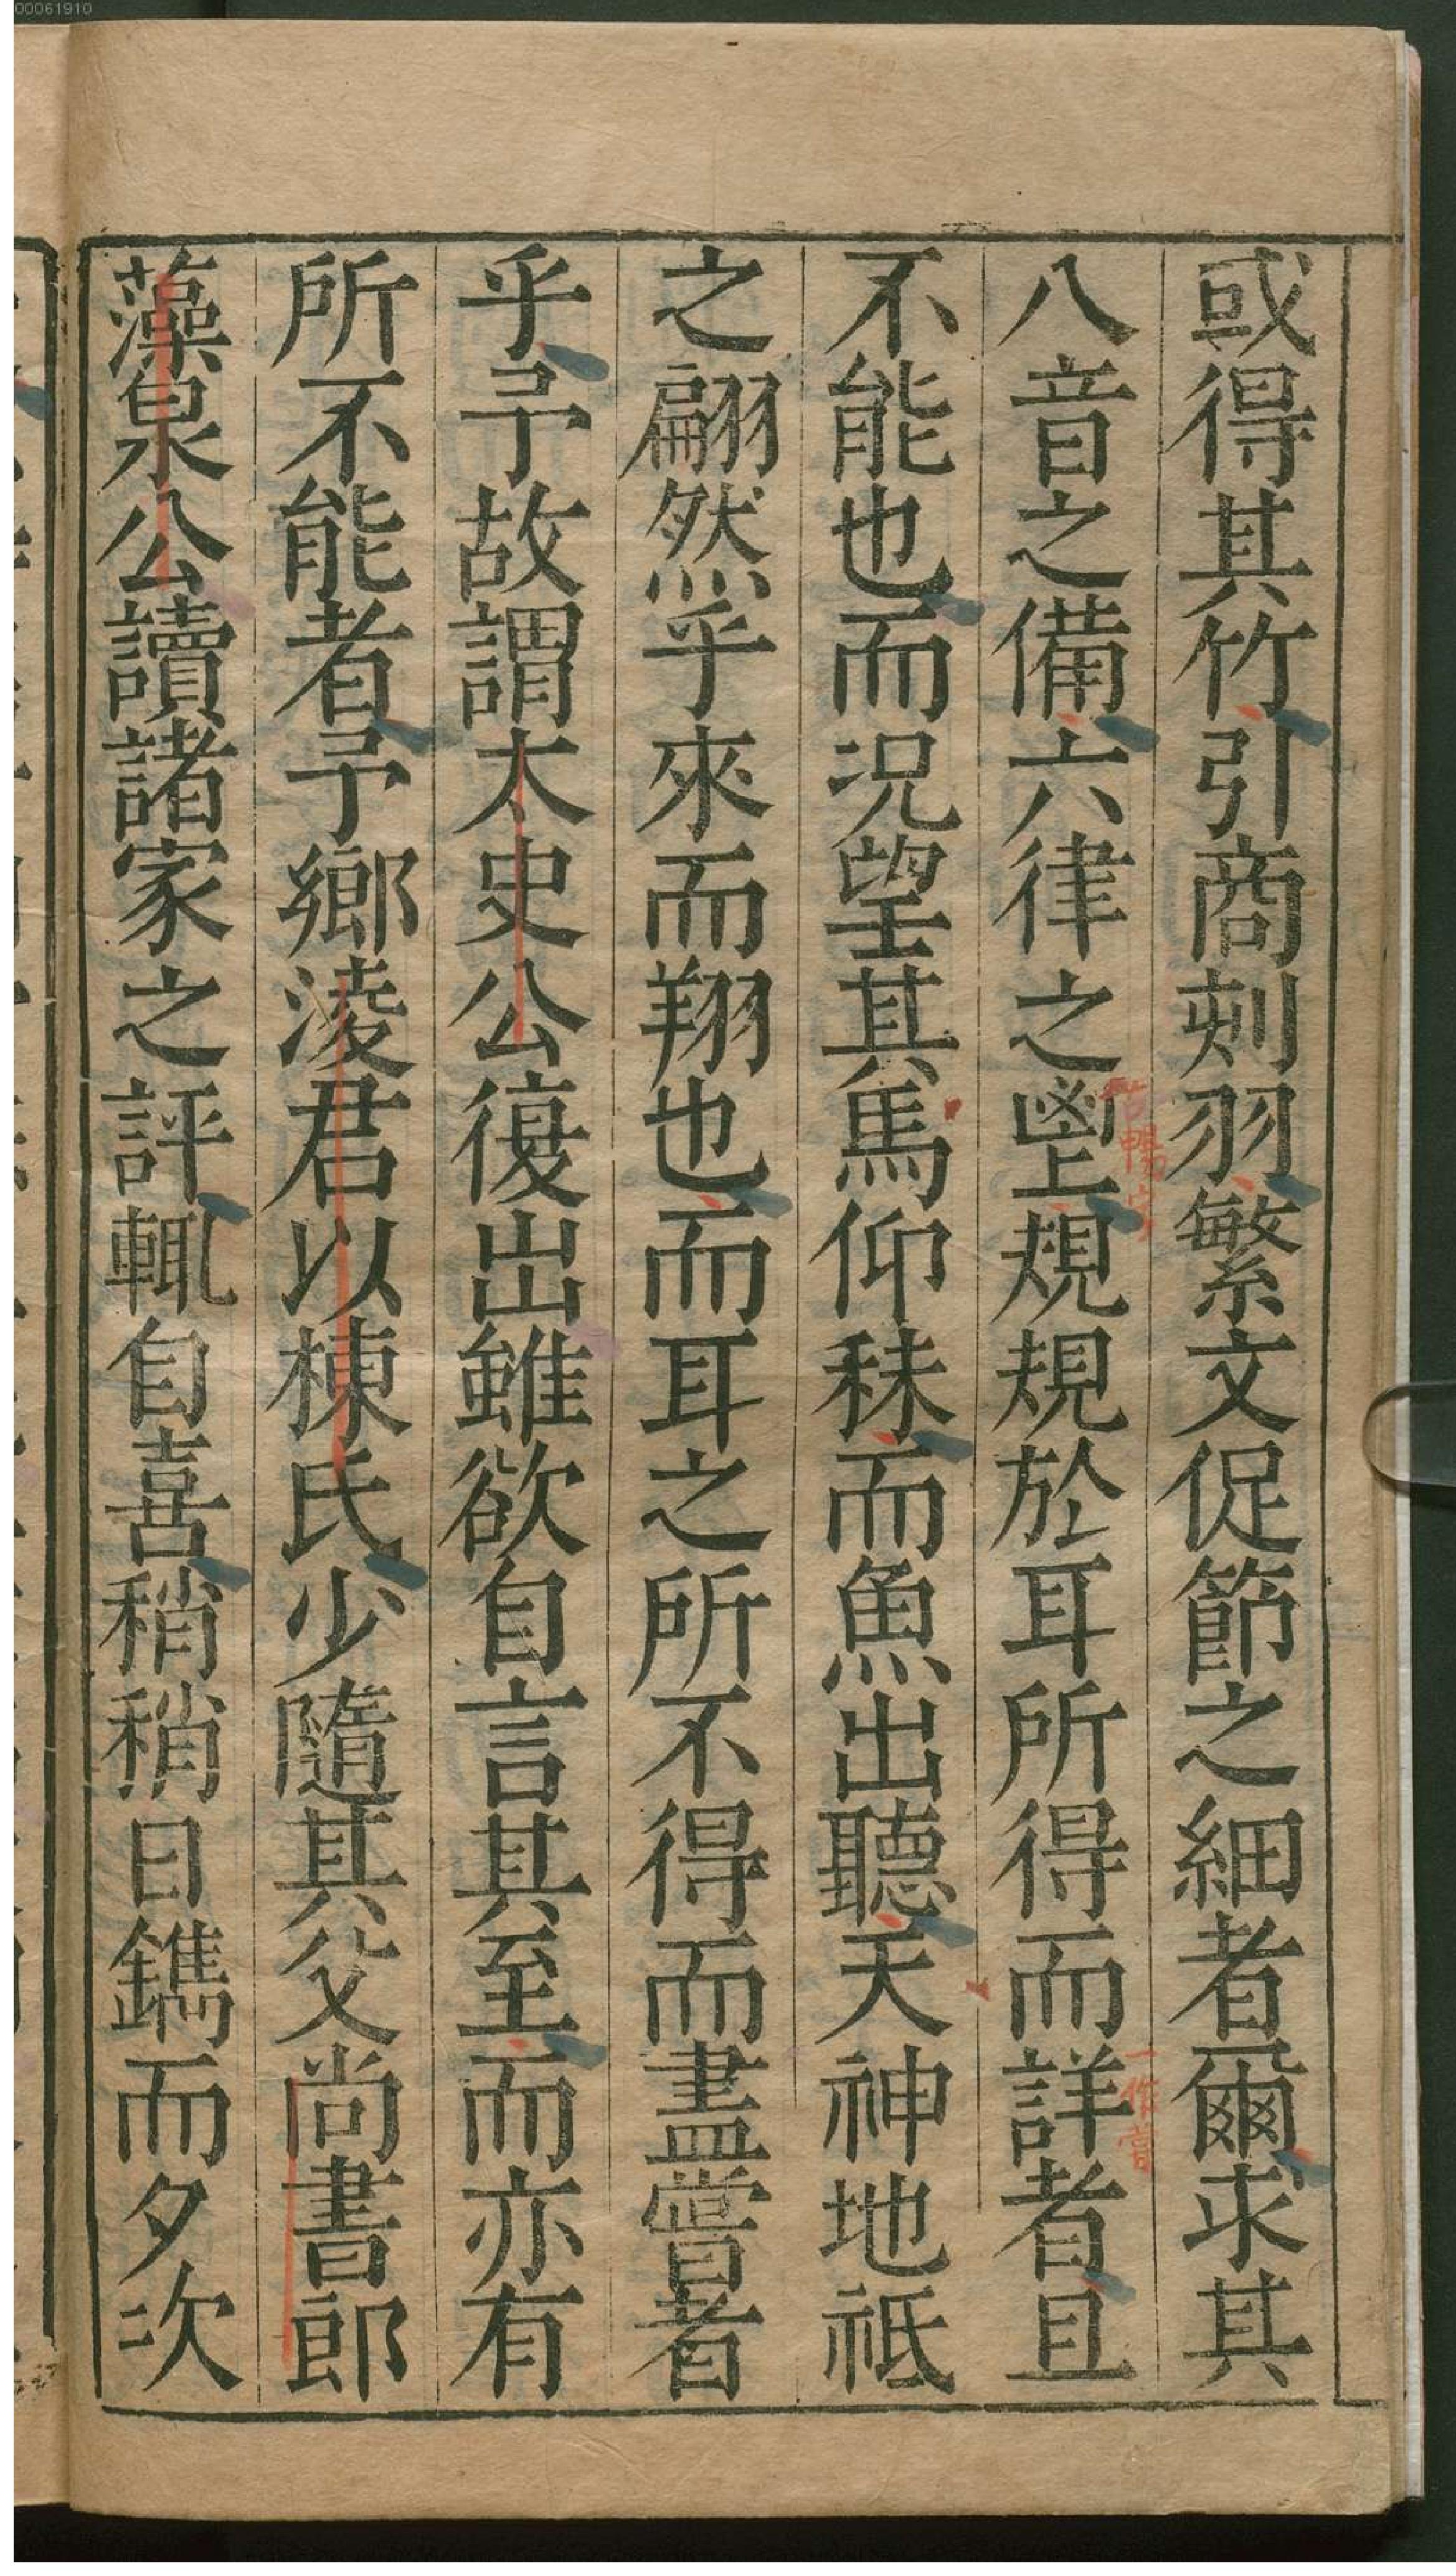 00061910
或得其竹引商刻羽繁文促節之細者爾求其
八音之備六律之鬯規規於耳所得而詳者且
不能也而况望其馬仰秣而魚出聽天神地祇
之翩然乎來而翔也而耳之所不得而盡嘗者
乎予故謂太史公復出雖欲自言其至而亦有
所不能者予鄉淩君以棟氏少隨其父尚書郎
藻泉公讀諸家之評輒自喜稍稍日鐫而夕次
一作言